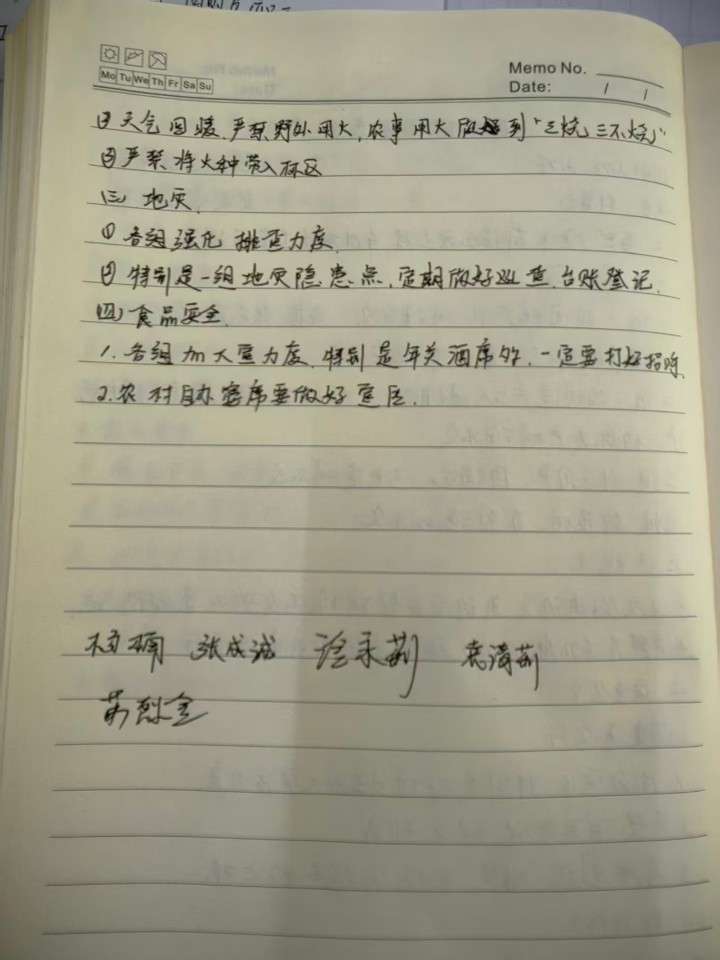 Mo Tu We Th Fr Sa Su
Memo No.
Date: / /
③ 天气回暖,严禁野外用火,农事用火做到“三烧三不烧”
④ 严禁将火种带入林区
(三) 地灾.
① 各组强化排查力度.
② 特别是一组地灾隐患点,定期做好巡查,台账登记.
(四) 食品安全.
1. 各组加大宣力度,特别是年关酒席多,一定要打好招呼.
2. 农村自办宴席要做好宣传.
张成诚